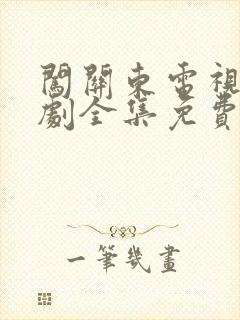 闖關東電視
劇全集免費
一筆幾畫